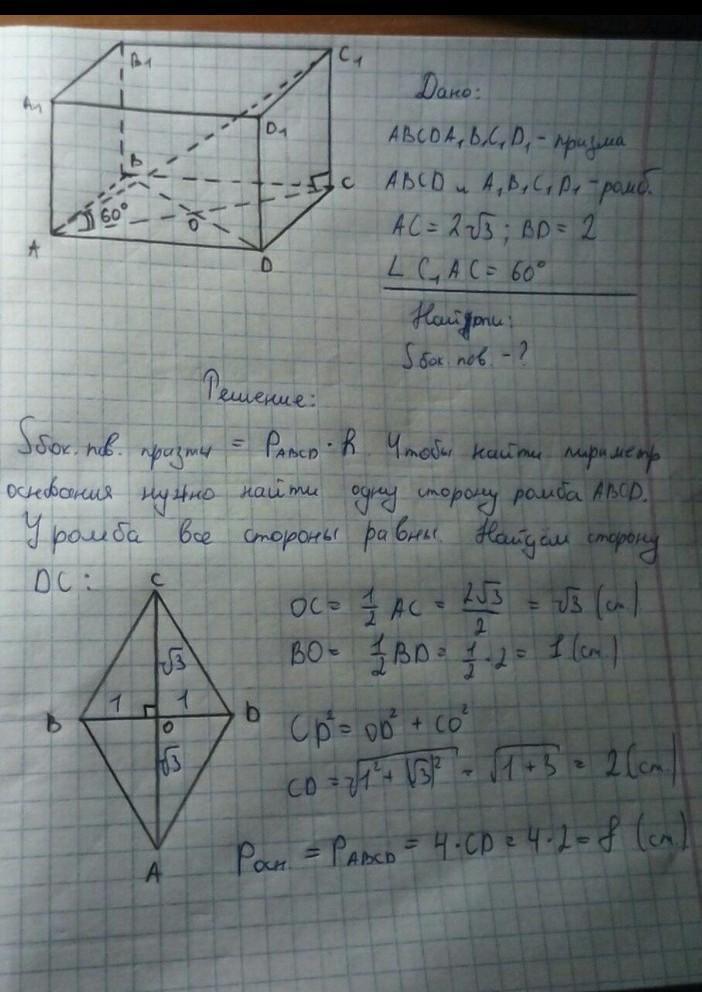 B₁
C₁
A₁
D₁
B
C
60°
O
A
D
Дано:
ABCDA₁B₁C₁D₁ - призма
ABCD и A₁B₁C₁D₁ - ромб.
AC = 2√3 ; BD = 2
∠ C₁AC = 60°
Найти:
Sбок. пов. - ?
Решение:
Sбок. пов. призмы = PABCD · h. Чтобы найти пириметр
основания нужно найти одну сторону ромба ABCD.
У ромба все стороны равны. Найдём сторону
DC :
C
√3
1 1
B D
O
√3
A
OC = 1/2 AC = 2√3/2 = √3 (см)
BO = 1/2 BD = 1/2 · 2 = 1 (см)
CD² = OD² + CO²
CD = √1² + (√3)² = √1 + 3 = 2 (см)
Pосн. = PABCD = 4 · CD = 4 · 2 = 8 (см)